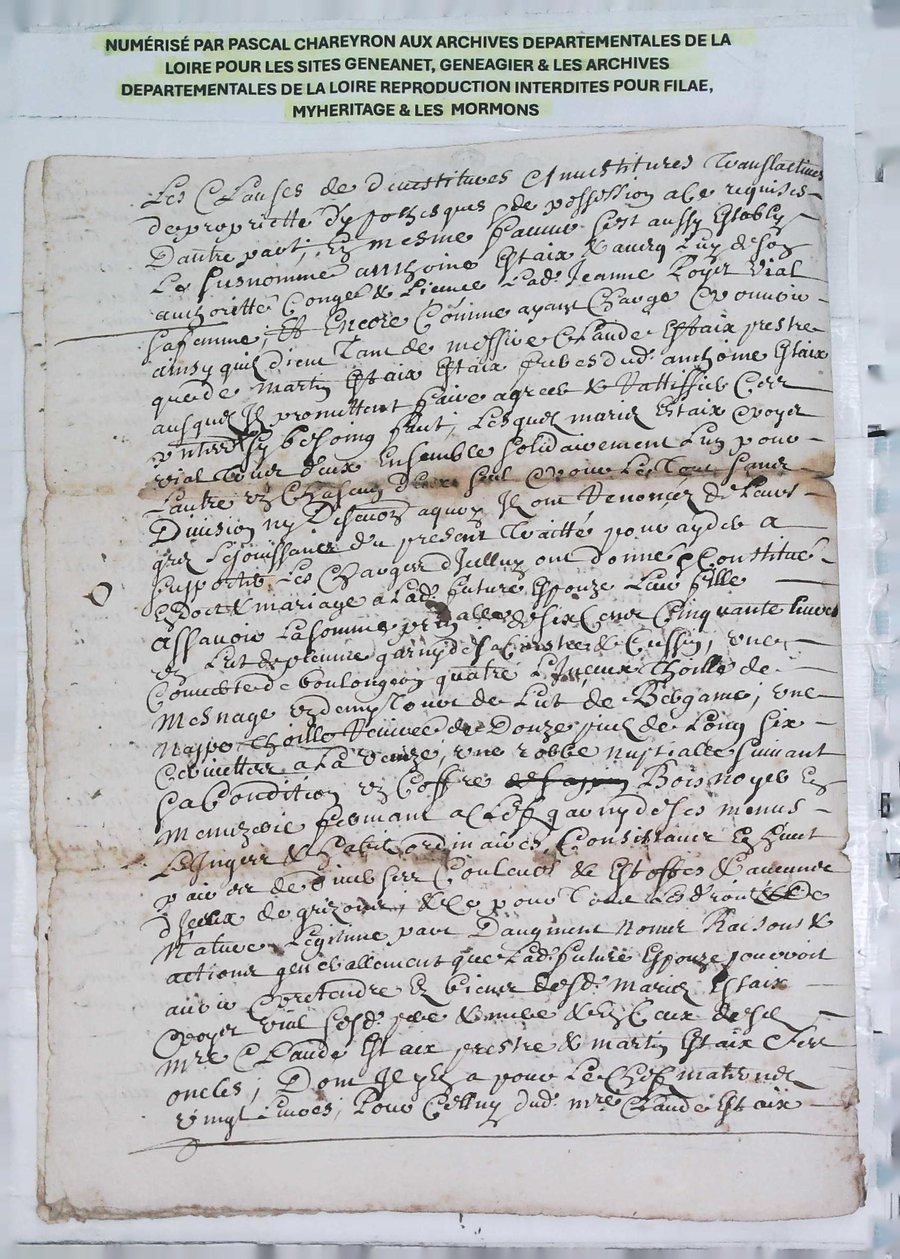 NUMÉRISÉ PAR PASCAL CHAREYRON AUX ARCHIVES DEPARTEMENTALES DE LA
LOIRE POUR LES SITES GENEANET, GENEAGIER & LES ARCHIVES
DEPARTEMENTALES DE LA LOIRE REPRODUCTION INTERDITES POUR FILAE,
MYHERITAGE & LES MORMONS
Les Clauses de translatives
de proprietté d'ypotheques & de possession a ce requises
D'autre part, En mesme s'est aussy Estably
Le surnommé anthoine Estaix Luy de son
authoritté Congé & Licence Lad. Jeanne Royer Vial
sa femme, Et Encore Comme ayant Charge
ainsy quil dient Tant de messire Claude Estaix prestre
que de martin Estaix Estaix dud. anthoine Estaix
ausquels Il promettent faire agreer & Rattiffier Ces
sy besoing faict, Lesquels mariez Estaix & royer
vial Tous deux Ensemble solidairement L'un pour
L'autre & Chascun D'eux seul & pour Le Tout sans
Division ny aquoy Ilz ont Renoncéz de Leurs
grez Lejouissances du present Traitté pour ayder a
supporter Les Charges d'Icelluy ont donné & Constitué
En dot & mariage a Lad. future Espouze Leur fille
Assavoir La somme de six Cens Cinquante Livres
Un Lict de plume garny de son & Cussin, une
Couverte de boulongeon quatre Linceux Thoille de
Mesnage & demy Tour de Lict de Bergame, une
Nappe Thoille de Douze piedz de Long six
a La Venize, une robbe nuptialle suivant
sa Condition Un Coffre Bois noyer En
Menuzerie fermant a Clef garny de ses menus
Linges & habits ordinaires, Consistance En huict
paires de diverses Couleurs & Estoffes
d'Iceux de grizons, & Ce pour Tous Les droits de
Nature Legitime part D'augment Nomer Raisons &
actions generallement que Lad. future Espouze pouvoit
avoir & pretendre Es biens desd. mariez Estaix
& royer vial sesd. pere & mere & En Ceux desd.
Mre Claude Estaix prestre & martin Estaix ses
oncles, Dont Il y En a pour Le Chef maternel
vingt Livres, Pour Celluy dud. Mre Claude Estaix